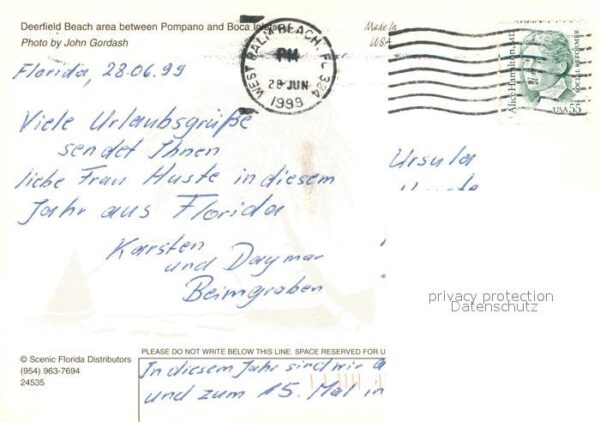 Deerfield Beach area between Pompano and Boca Inlets
Photo by John Gordash
Made In
USA
WEST PALM BEACH, FL 334
PM
28 JUN
1999
Alice Hamilton, MD
SOCIAL REFORMER
USA 55
Florida, 28.06.99
Viele Urlaubsgrüße
sendet Ihnen
liebe Frau Huste in diesem
Jahr aus Florida
Karsten
und Daymar
Beimgraben
Ursula
privacy protection
Datenschutz
© Scenic Florida Distributors
(954) 963-7694
24535
PLEASE DO NOT WRITE BELOW THIS LINE SPACE RESERVED FOR U
In diesem Jahr sind wir
und zum 15. Mal in